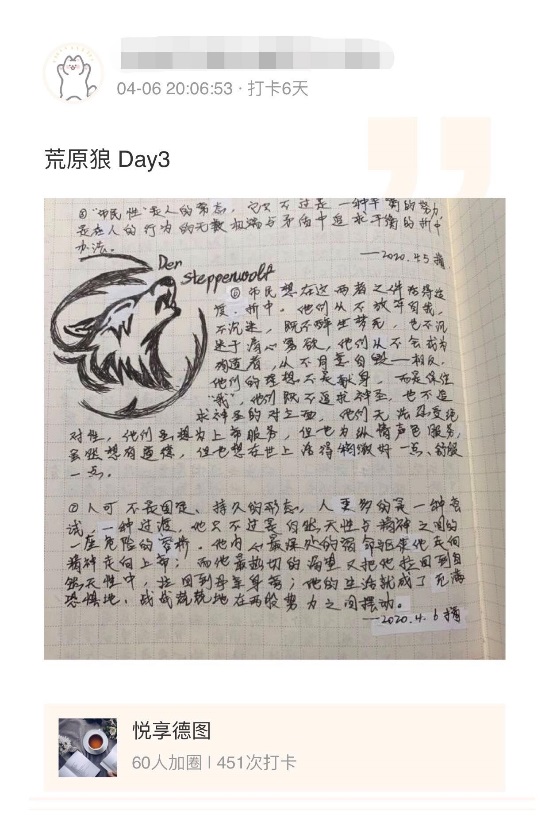 04-06 20:06:53 · 打卡6天
荒原狼 Day3
⑤"市民性"是人的常态，它只不过是一种平衡的努力，
是在人的行为的无数极端与矛盾中追求平衡的折中
办法。
—2020.4.5摘
Der Steppenwolf
⑥市民想在这两者之件活得适
度、折中。他们从不放弃自我，
不沉迷，既不醉生梦死，也不沉
迷于清心寡欲，他们从不会成为
殉道者，从不自甘自毁——相反，
他们的理想不是献身，而是保住
"我"，他们既不追求神圣，也不追
求神圣的对立面，他们无法忍受绝
对性，他们虽想为上帝服务，但也为纵情声色服务，
虽然想有道德，但也想在世上活得稍微好一点、舒服
一点。
⑦人可不是固定、持久的形态，人更多的是一种尝
试，一种过渡，他只不过是自然天性与精神之间的
一座危险的窄桥。他内心最深处的宿命驱使他走向
精神走向上帝；而他最热切的渴望又把他拉回到自
然天性中，拉回到母亲身旁；他的生活就成了充满
恐惧地、战战兢兢地在两股势力之间摆动。
—2020.4.6摘
悦享德图
60人加圈 | 451次打卡